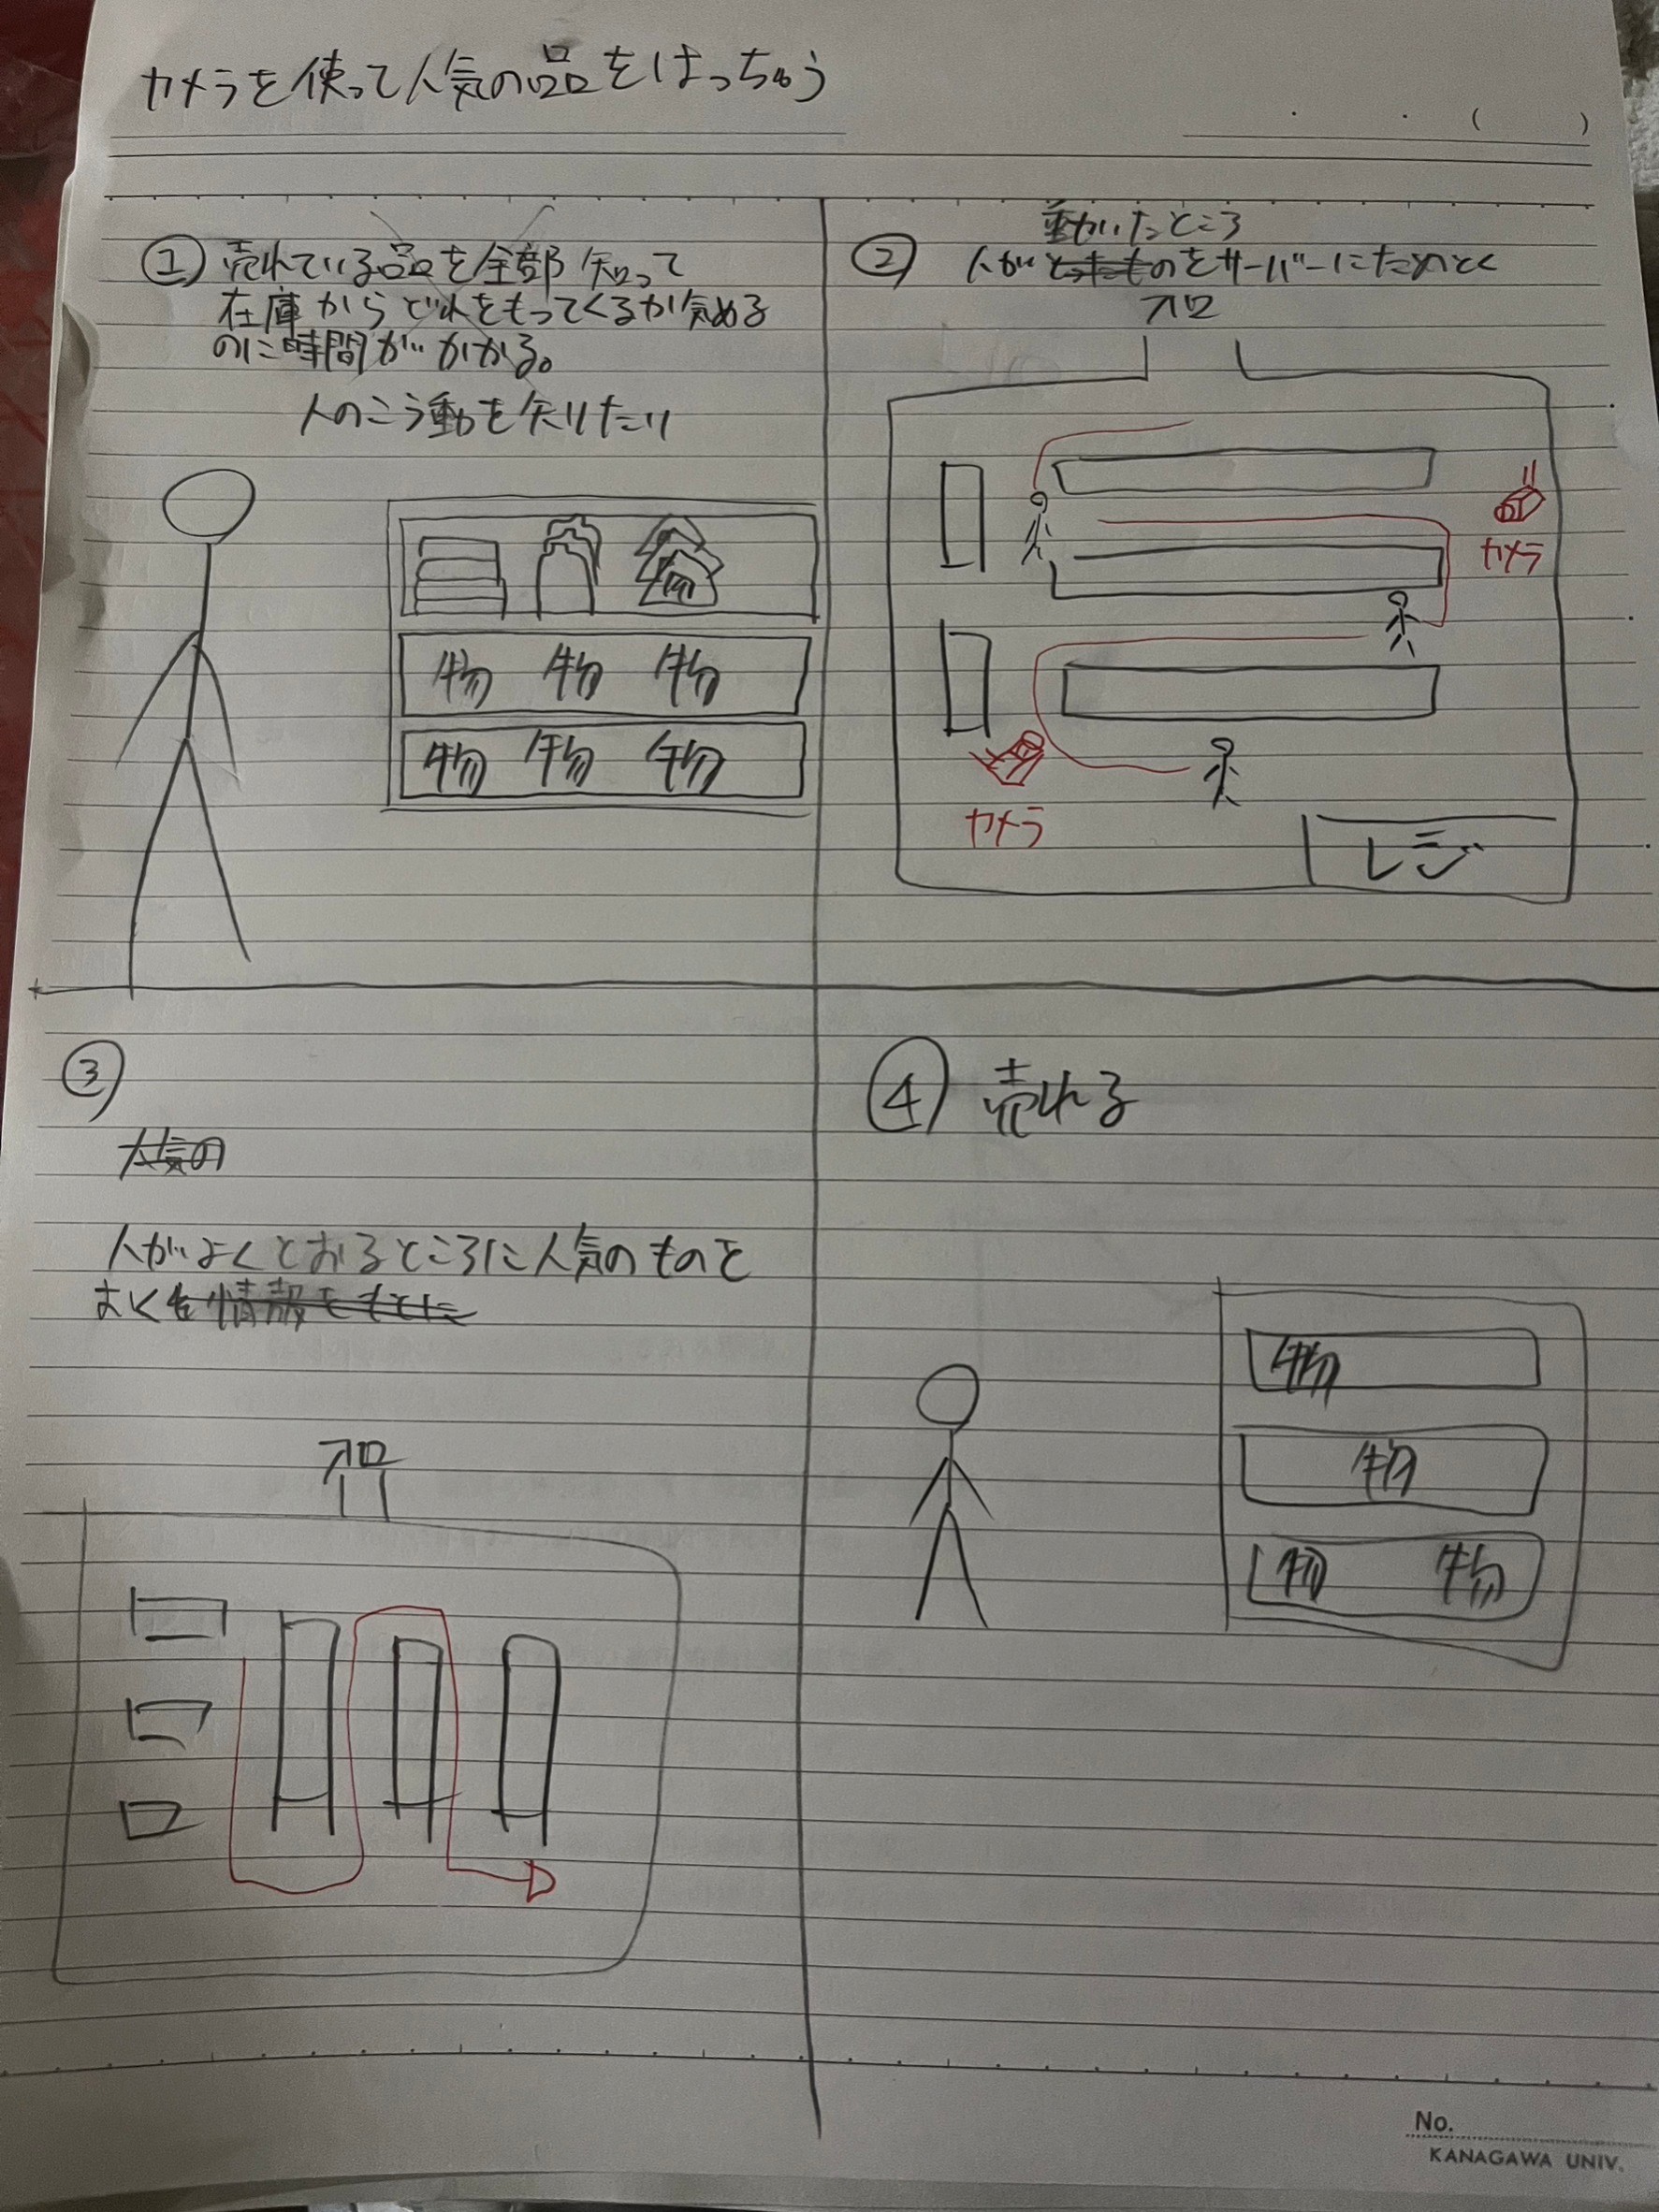 カメラを使って人気の品をはっちゅう
. . ( )
① 売れている品を全部知って
在庫からどれをもってくるか気める
のに時間がかかる。
人のこう動を知りたい
物 物 物
物 物 物
② 動いたところ
人がとったものをサーバーにためとく
入口
カメラ
カメラ
レジ
③
人気の
人がよくとおるところに人気のものを
おくを情報をもとに
入口
④ 売れる
物
物
物 物
No.
KANAGAWA UNIV.